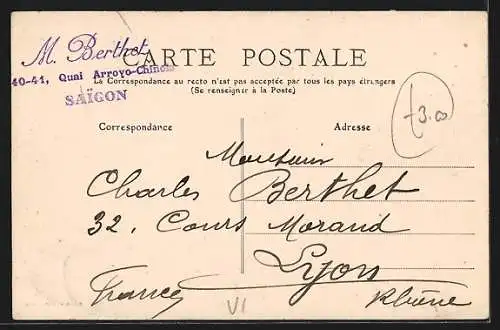 M. Berthet
40-41, Quai Arroyo-Chinois
SAÏGON
CARTE POSTALE
La Correspondance au recto n'est pas acceptée par tous les pays étrangers
(Se renseigner à la Poste)
Correspondance
Adresse
Monsieur
Charles Berthet
32, Cours Morand
Lyon
France
Rhône
VI